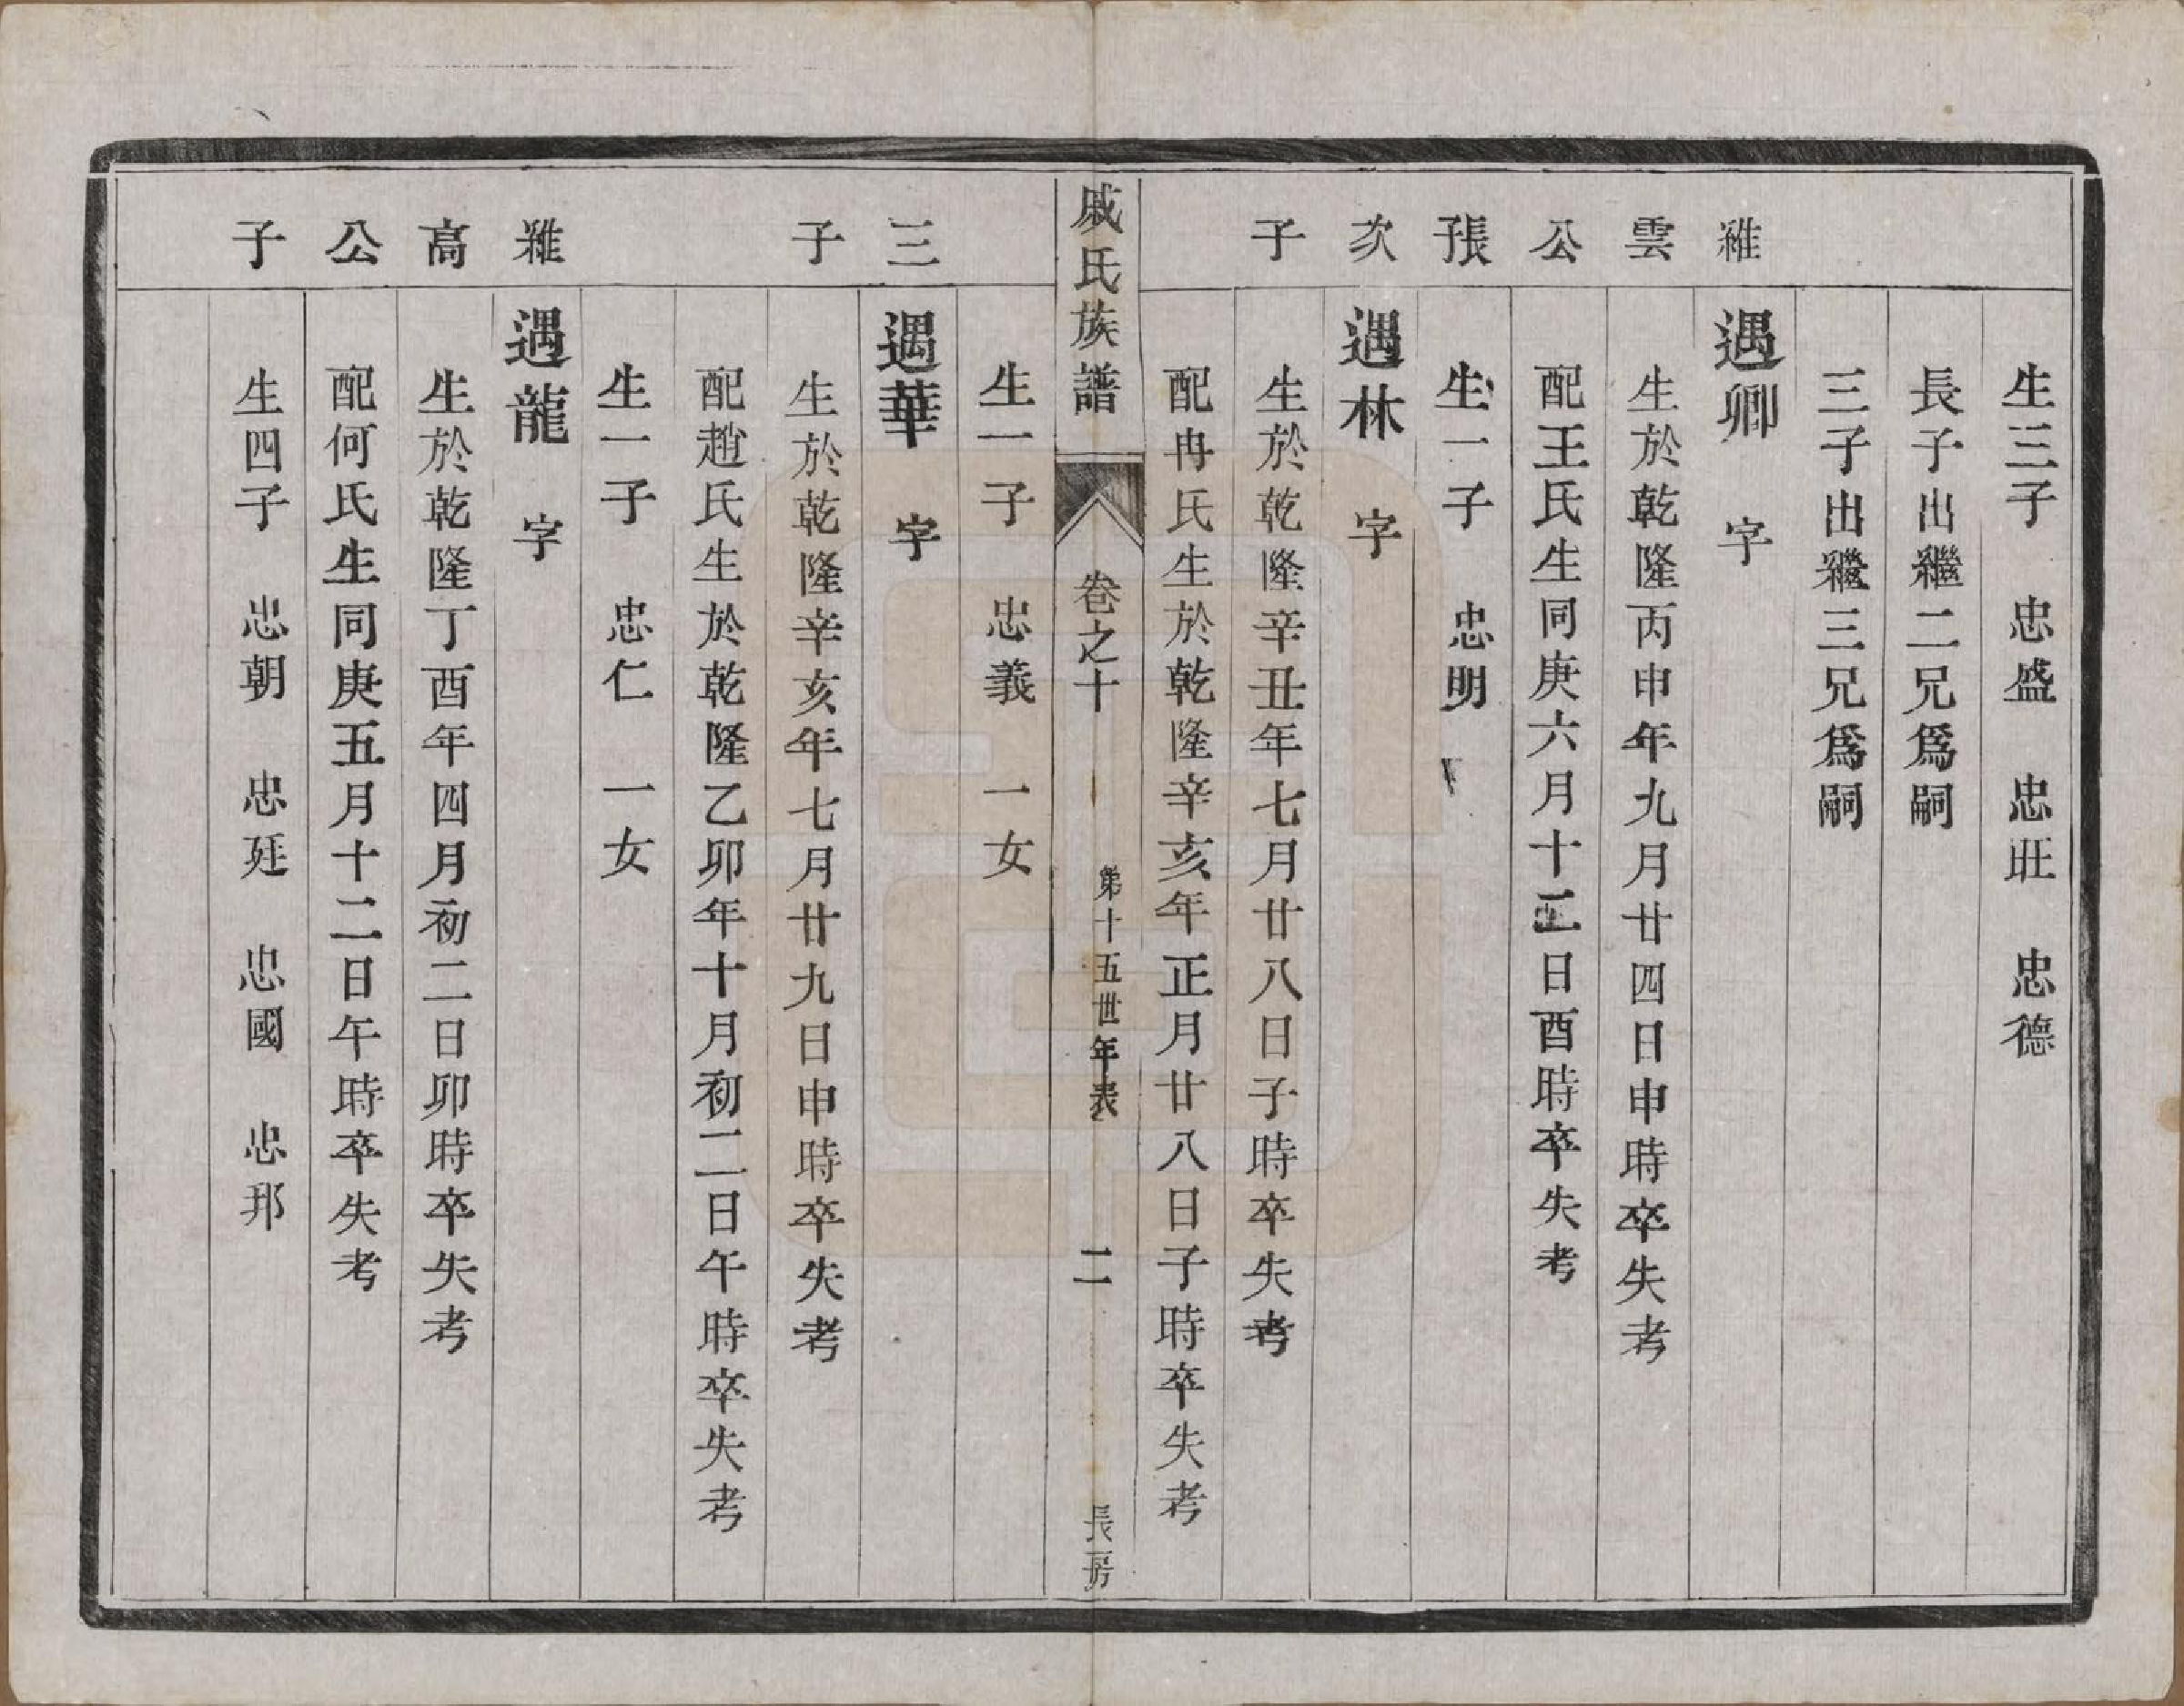 生三子　忠盛　忠旺　忠德
長子出繼二兄爲嗣
三子出繼三兄爲嗣
雍雲公長子
遇卿　字
生於乾隆丙申年九月廿四日申時卒失考
配王氏生同庚六月十三日酉時卒失考
生一子　忠明
次子
遇林　字
生於乾隆辛丑年七月廿八日子時卒失考
配冉氏生於乾隆辛亥年正月廿八日子時卒失考
戚氏族譜　卷之十　第十五世年表　二　長房
生一子　忠義　一女
三子
遇華　字
生於乾隆辛亥年七月廿九日申時卒失考
配趙氏生於乾隆乙卯年十月初二日午時卒失考
生一子　忠仁　一女
雍高公子
遇龍　字
生於乾隆丁酉年四月初二日卯時卒失考
配何氏生同庚五月十二日午時卒失考
生四子　忠朝　忠廷　忠國　忠邦